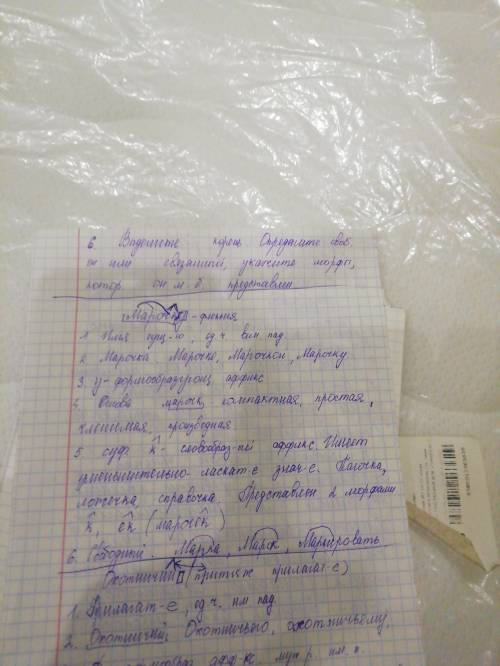 6. Выделите корень Определите своб.
он или связанный, укажите морфы,
котор. он м.б. представлен
Марочку - флексия
1. Имя сущ-ое, ед.ч. вин. пад.
2. Марочкой Марочке, Марочкой, Марочку
3. у- формообразующ. аффикс
4. Основа марочк, компактная, простая,
членимая, производная
5. суф. к - словообраз-ный аффикс. Имеет
уменьшительно-ласкат-е знач-е. Папочка,
ложечка справочка. Представлен 2 морфами
к, ек (марочек)
6. Свободный. Марка, Марок, Маркировать
Охотничий (притяж прилагат-е)
1. Прилагат-е, ед.ч. им. пад.
2. Охотничий, Охотничьего, охотничьему,
муж р. им. п.